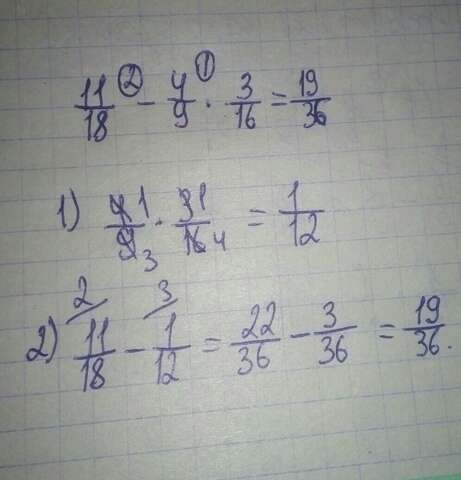 11/18 ② − 4/9 ① · 3/16 = 19/36
1) 4̸ 1/9̸ 3 · 3̸ 1/1̸6̸ 4 = 1/12
2) 11/18 (2/) − 1/12 (3/) = 22/36 − 3/36 = 19/36.